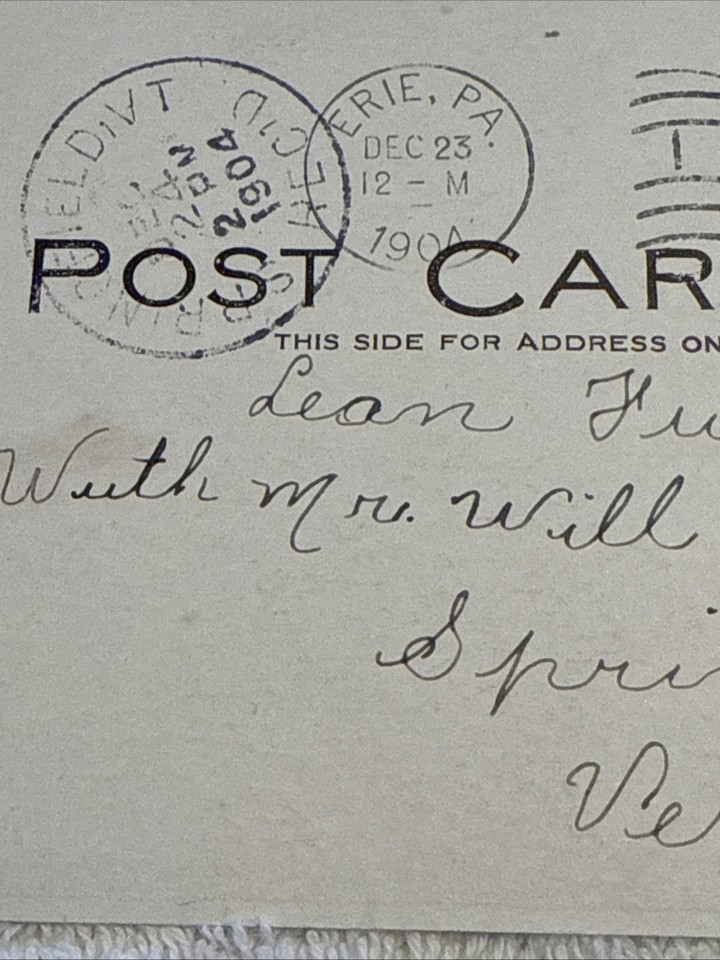 SPRINGFIELD, VT REC'D.
DEC
2 - PM
1904
ERIE, PA.
DEC 23
12 - M
1904
1
POST CAR
THIS SIDE FOR ADDRESS ON
Lean Fu
With Mr. Will
Spri
Ve